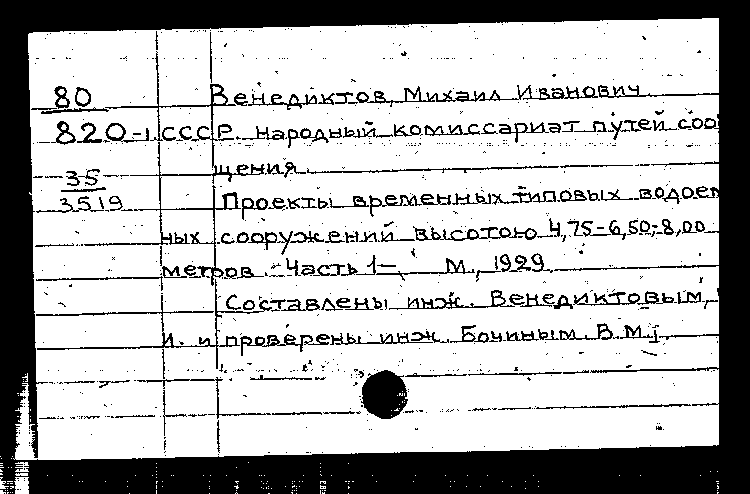 80 Венедиктов, Михаил Иванович
820-1 СССР. народный комиссариат путей соо
35 щения.
3519 Проекты временных типовых водоем
ных сооружений высотою 4,75-6,50-8,00
метров. Часть 1-, М., 1929
Составлены инж. Венедиктовым,
И. и проверены инж. Бочиным В.М.;